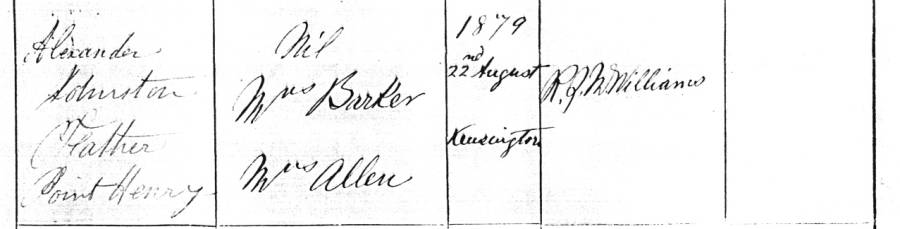 Alexander
Johnston
(Father
Point Henry
Nil
Mrs Barker
Mrs Allen
1879
22nd August
Kensington
R. J. McWilliams